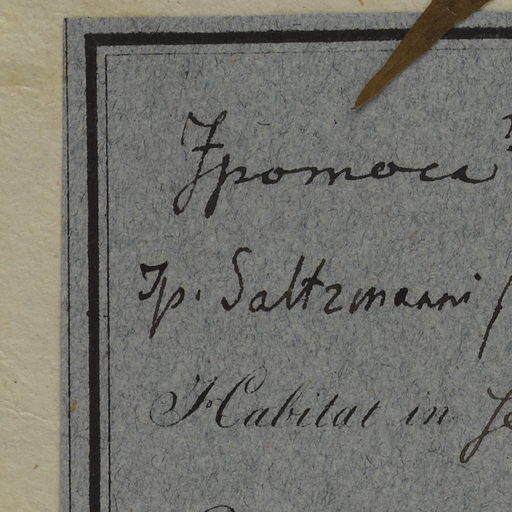 Ipomoea
Ip. Saltzmanni
Habitat in